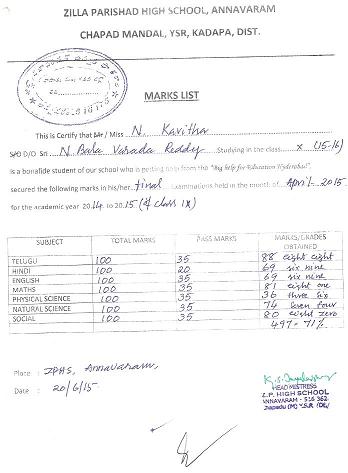 ZILLA PARISHAD HIGH SCHOOL, ANNAVARAM
CHAPAD MANDAL, YSR, KADAPA, DIST.
MARKS LIST
This is Certify that Mr / Miss N. Kavitha
S/O D/O Sri N. Bala Varada Reddy Studying in the class X (15-16)
is a bonafide student of our school who is getting help from the "Big help for Education Hyderabad",
secured the following marks in his/her final Examinations held in the month of April - 2015
for the academic year 2014 to 2015 (of class IX)
SUBJECT TOTAL MARKS PASS MARKS MARKS/GRADES OBTAINED
TELUGU 100 35 88 eight eight
HINDI 100 20 69 six nine
ENGLISH 100 35 69 six nine
MATHS 100 35 81 eight one
PHYSICAL SCIENCE 100 35 36 three six
NATURAL SCIENCE 100 35 74 seven four
SOCIAL 100 35 80 eight zero
497 - 71%
Place : ZPHS, Annavaram,
Date : 20/6/15
HEAD MISTRESS
Z.P. HIGH SCHOOL
ANNAVARAM - 516 362